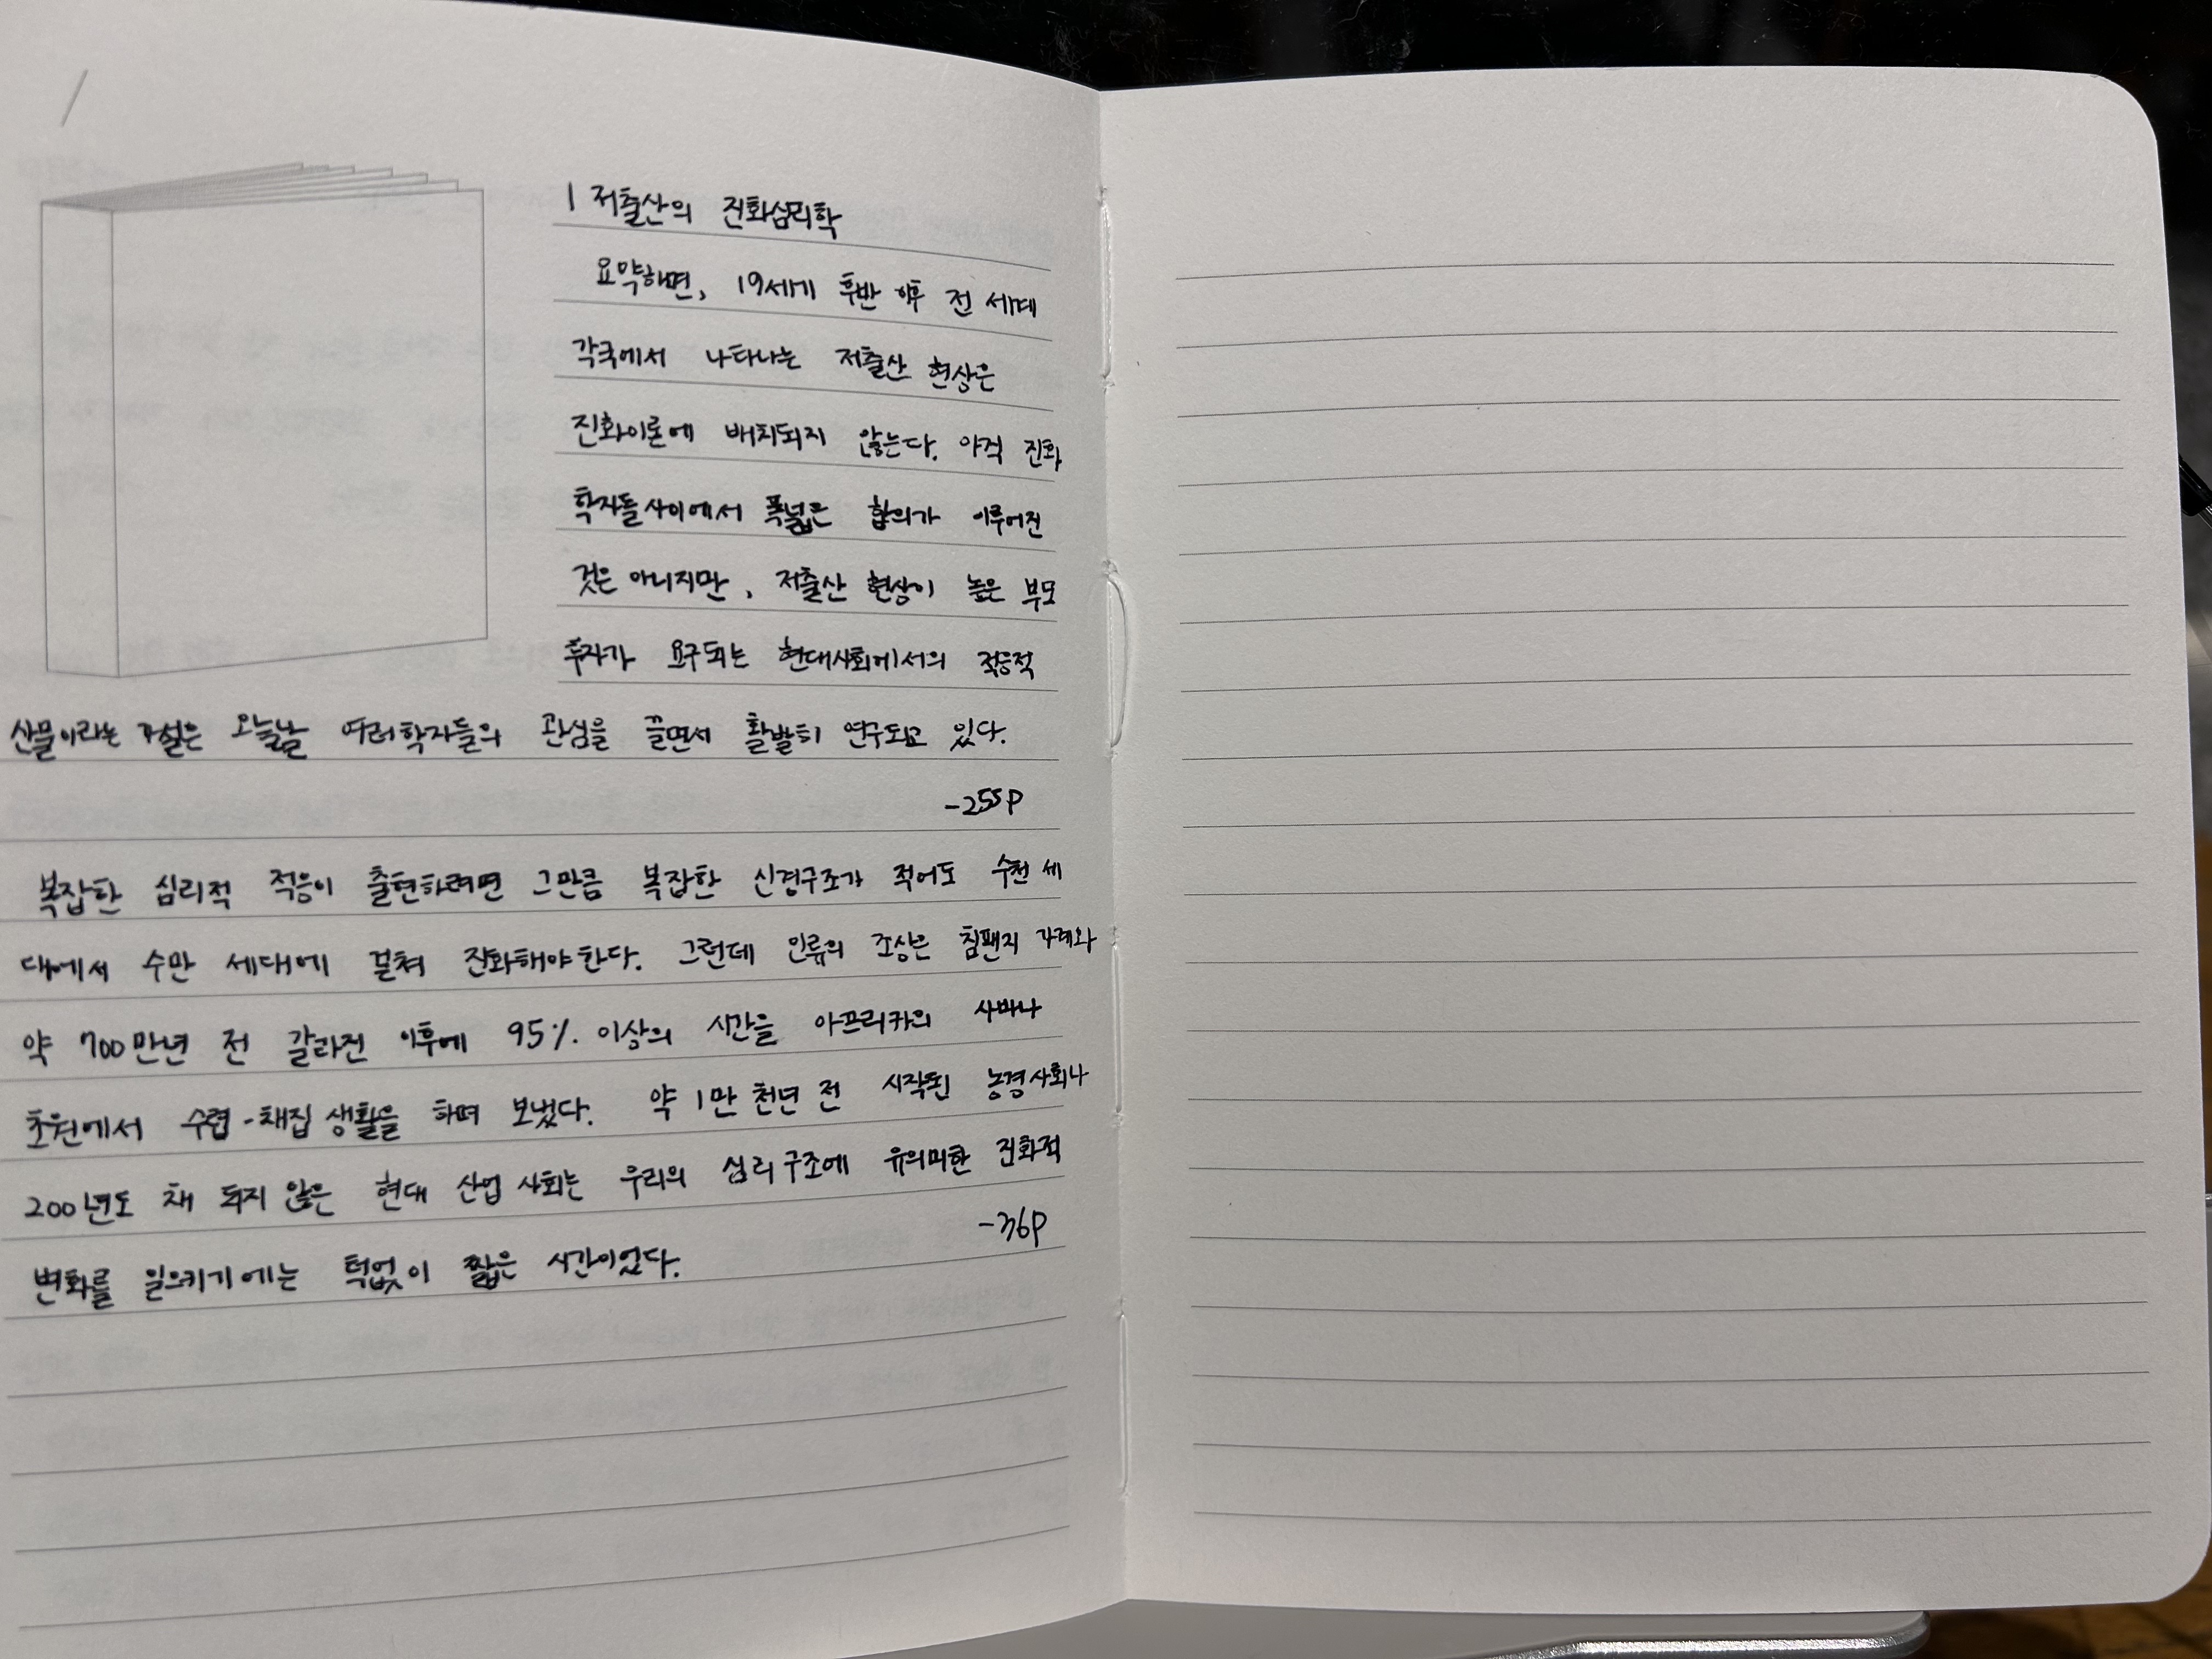 1 저출산의 진화심리학
요약하면, 19세기 후반 이후 전 세계
각국에서 나타나는 저출산 현상은
진화이론에 배치되지 않는다. 아직 진화
학자들사이에서 폭넓은 합의가 이루어진
것은 아니지만, 저출산 현상이 높은 부모
투자가 요구되는 현대사회에서의 적응적
산물이라는 가설은 오늘날 여러학자들의 관심을 끌면서 활발히 연구되고 있다.
-255p
복잡한 심리적 적응이 출현하려면 그만큼 복잡한 신경구조가 적어도 수천 세
대에서 수만 세대에 걸쳐 진화해야한다. 그런데 인류의 조상은 침팬지 가계와
약 700만년 전 갈라진 이후에 95% 이상의 시간을 아프리카의 사바나
초원에서 수렵-채집 생활을 하며 보냈다. 약 1만 천년 전 시작된 농경사회나
200년도 채 되지 않은 현대 산업 사회는 우리의 심리구조에 유의미한 진화적
변화를 일으키기에는 턱없이 짧은 시간이었다.
-36p